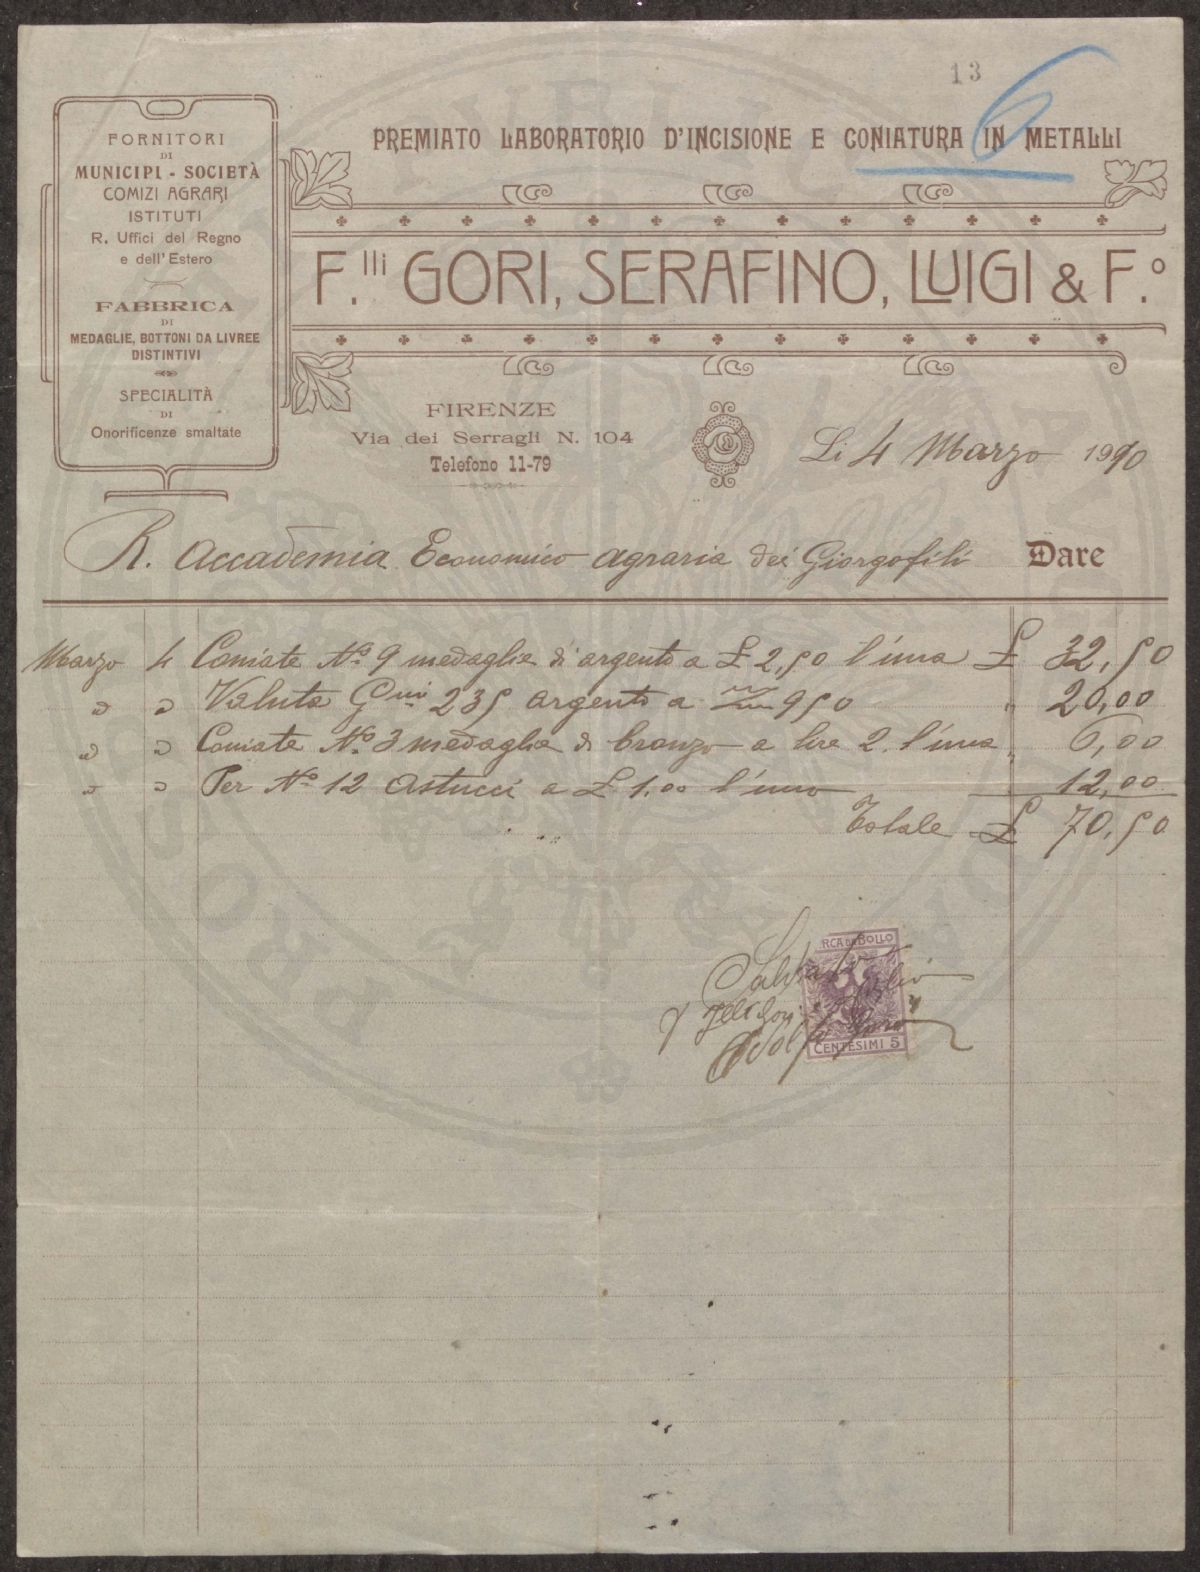 13
6
FORNITORI
DI
MUNICIPI - SOCIETÀ
COMIZI AGRARI
ISTITUTI
R. Uffici del Regno
e dell'Estero
FABBRICA
DI
MEDAGLIE, BOTTONI DA LIVREE
DISTINTIVI
SPECIALITÀ
DI
Onorificenze smaltate
PREMIATO LABORATORIO D'INCISIONE E CONIATURA IN METALLI
F.lli GORI, SERAFINO, LUIGI & F.o
FIRENZE
Via dei Serragli N. 104
Telefono 11-79
Li 4 Marzo 1910
R. Accademia Economico agraria dei Giorgofili Dare
Marzo 4 Coniate No. 9 medaglie di argento a £ 2,50 l'una £ 32,50
" " Valuta Gmi 235 argento a 950 " 20,00
" " Coniate No. 3 medaglie di bronzo a lire 2. l'una " 6,00
" " Per No. 12 Astucci a £ 1.00 l'uno 12,00
Totale £ 70,50
MARCA DA BOLLO
Saldato
CENTESIMI 5